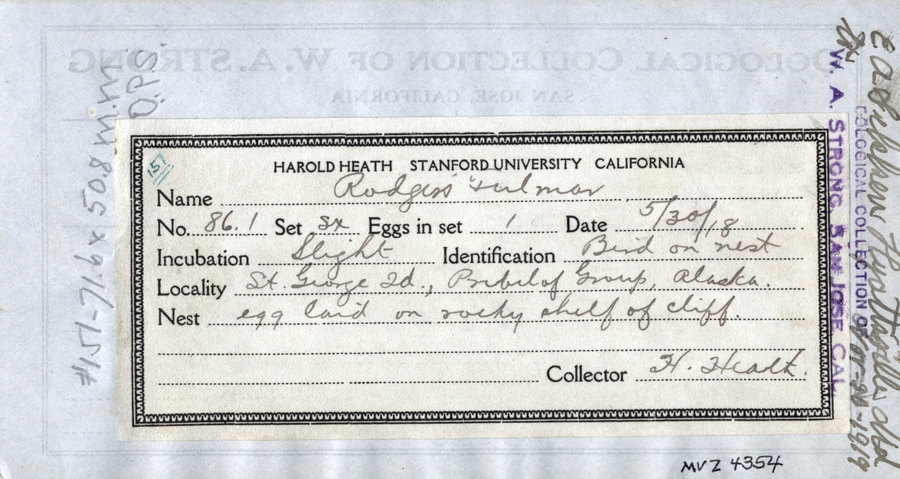 OOLOGICAL COLLECTION OF W. A. STRONG
SAN JOSE, CALIFORNIA
157
HAROLD HEATH STANFORD UNIVERSITY CALIFORNIA
Name Rodgers' Fulmar
No. 86.1 Set Sx Eggs in set 1 Date 5/30/18
Incubation Slight Identification Bird on nest
Locality St. George Id., Pribilof Group, Alaska.
Nest egg laid on rocky shelf of cliff.
Collector H. Heath.
MVZ 4354
#157-71.6 x 50.8 m.m
O.P.S.
OOLOGICAL COLLECTION OF
W. A. STRONG SAN JOSE CAL.